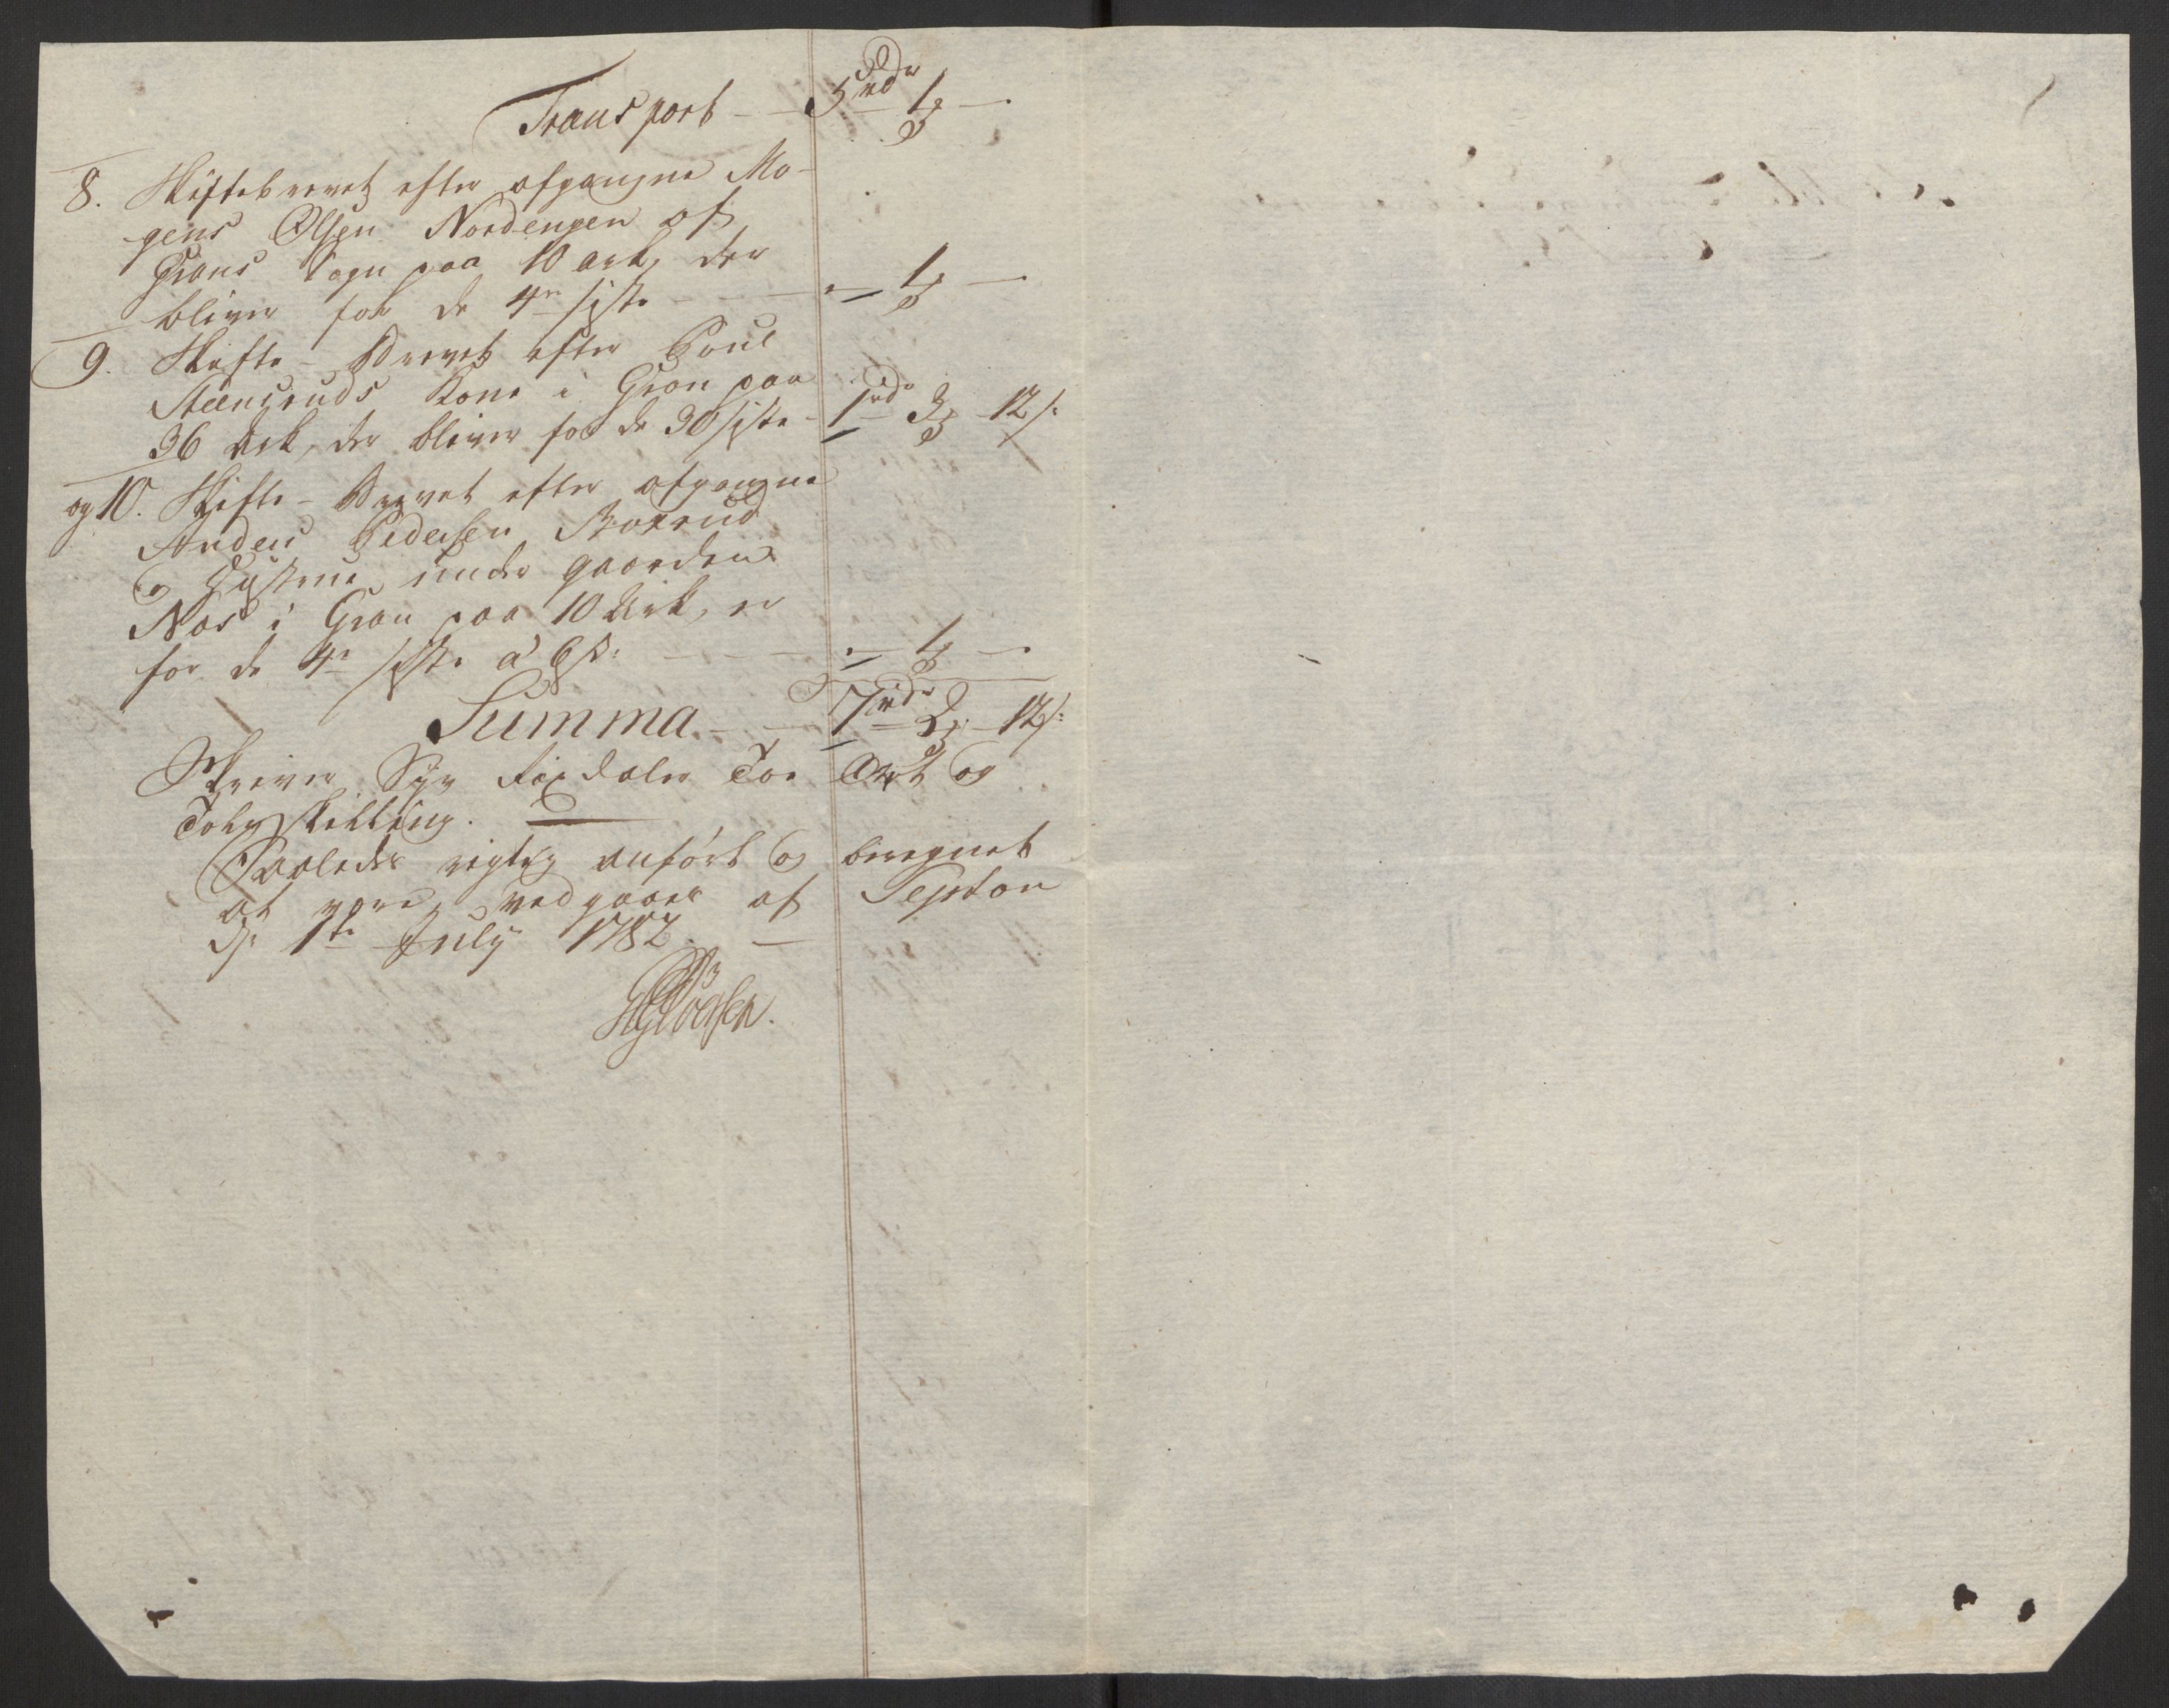 Transport — 5 rdr 1 ₰ —
8. Skiftebrevet efter afgangne Mo-
gens Olsen Nordengen af
Grans Sogn paa 10 Ark, der
bliver for de 4re siste — — 1 ₰ —
9. Skifte-Brevet efter Poul
Steensruds Kone i Gran paa
36 Ark, der bliver for de 30 siste - 1 rd 3 ₰ 12 s:
og 10. Skifte-Brevet efter afgangne
Anders Pedersen
og Hustrue under gaarden
Nas i Gran paa 10 Ark, er
for de 4re siste a 6 s: — — 1 ₰ —
Summa — 7 rdr 2 ₰ 12 s:
Skriver Syv Rixdaler Toe Ort og
Tolv skilling.
Saaledes rigtig anført og beregnet
at være, vedgaaes af
D: 1te July 1782. —